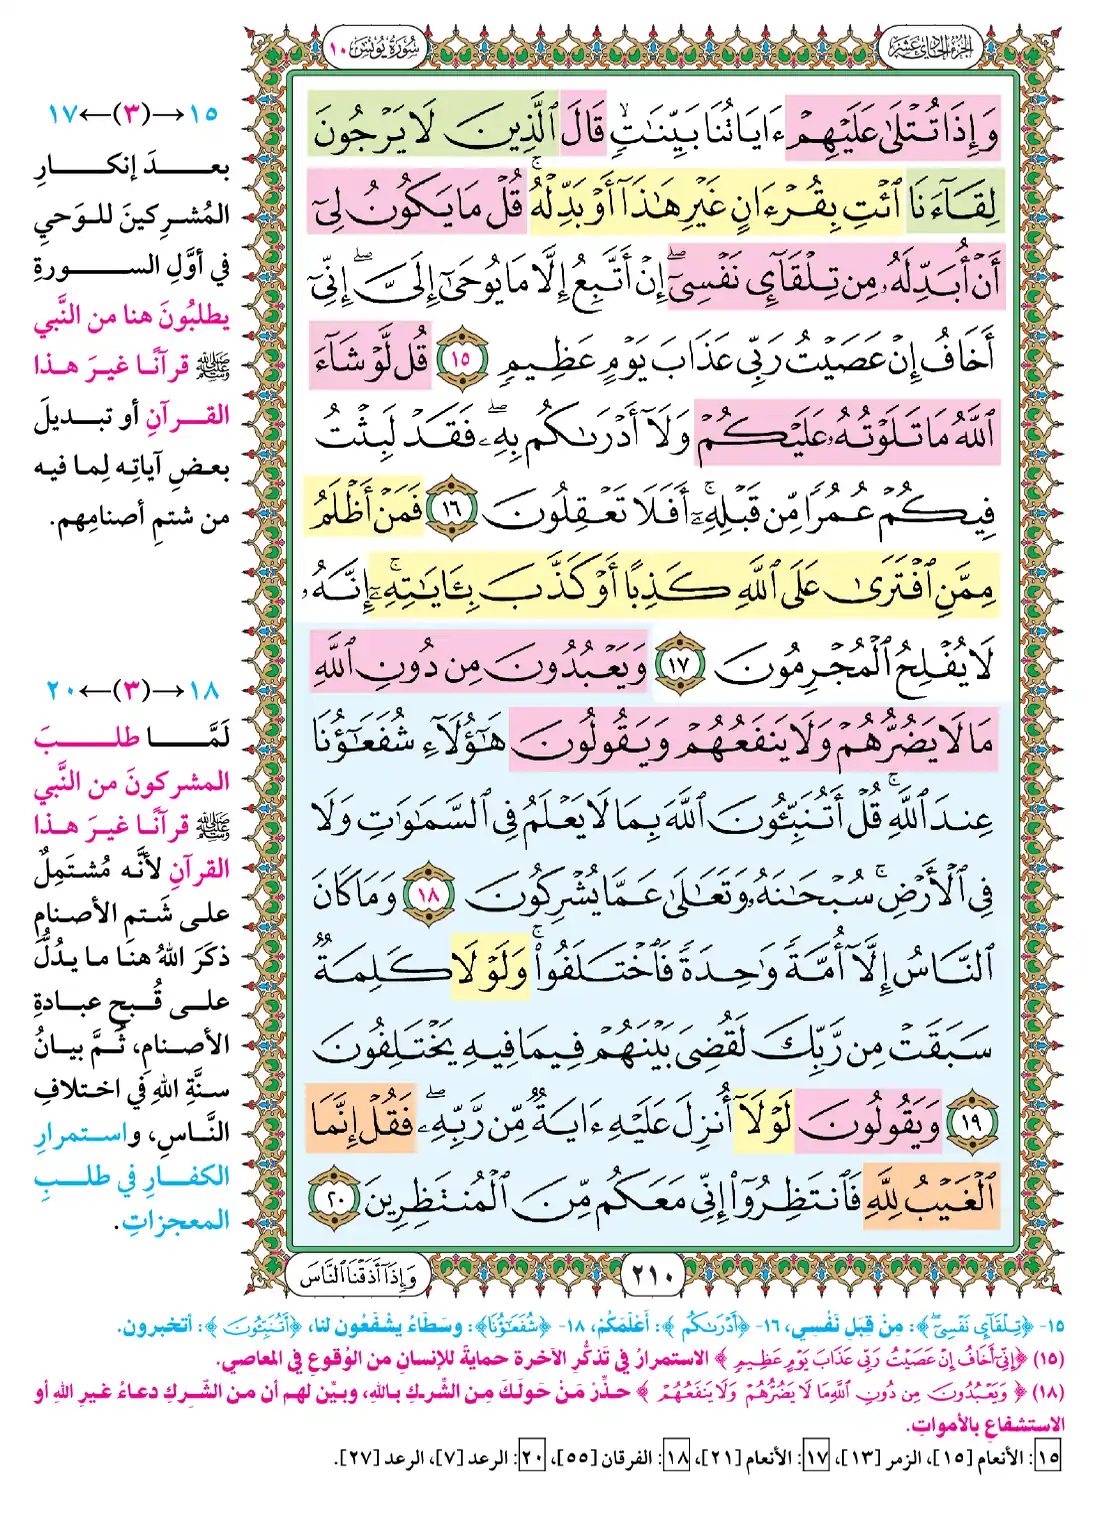 الجزء الحادي عشر
سورة يونس ١٠
وَإِذَا تُتْلَىٰ عَلَيْهِمْ ءَايَاتُنَا بَيِّنَٰتٍۙ قَالَ ٱلَّذِينَ لَا يَرْجُونَ
لِقَآءَنَا ٱئْتِ بِقُرْءَانٍ غَيْرِ هَٰذَآ أَوْ بَدِّلْهُۚ قُلْ مَا يَكُونُ لِىٓ
أَنْ أُبَدِّلَهُۥ مِن تِلْقَآئِ نَفْسِىٓۖ إِنْ أَتَّبِعُ إِلَّا مَا يُوحَىٰٓ إِلَىَّۖ إِنِّىٓ
أَخَافُ إِنْ عَصَيْتُ رَبِّى عَذَابَ يَوْمٍ عَظِيمٍ ١٥ قُل لَّوْ شَآءَ
ٱللَّهُ مَا تَلَوْتُهُۥ عَلَيْكُمْ وَلَآ أَدْرَىٰكُم بِهِۦۖ فَقَدْ لَبِثْتُ
فِيكُمْ عُمُرًا مِّن قَبْلِهِۦٓۚ أَفَلَا تَعْقِلُونَ ١٦ فَمَنْ أَظْلَمُ
مِمَّنِ ٱفْتَرَىٰ عَلَى ٱللَّهِ كَذِبًا أَوْ كَذَّبَ بِـَٔايَٰتِهِۦٓۚ إِنَّهُۥ
لَا يُفْلِحُ ٱلْمُجْرِمُونَ ١٧ وَيَعْبُدُونَ مِن دُونِ ٱللَّهِ
مَا لَا يَضُرُّهُمْ وَلَا يَنفَعُهُمْ وَيَقُولُونَ هَٰٓؤُلَآءِ شُفَعَٰٓؤُنَا
عِندَ ٱللَّهِۚ قُلْ أَتُنَبِّـُٔونَ ٱللَّهَ بِمَا لَا يَعْلَمُ فِى ٱلسَّمَٰوَٰتِ وَلَا
فِى ٱلْأَرْضِۚ سُبْحَٰنَهُۥ وَتَعَٰلَىٰ عَمَّا يُشْرِكُونَ ١٨ وَمَا كَانَ
ٱلنَّاسُ إِلَّآ أُمَّةً وَٰحِدَةً فَٱخْتَلَفُوا۟ۚ وَلَوْلَا كَلِمَةٌ
سَبَقَتْ مِن رَّبِّكَ لَقُضِىَ بَيْنَهُمْ فِيمَا فِيهِ يَخْتَلِفُونَ
١٩ وَيَقُولُونَ لَوْلَآ أُنزِلَ عَلَيْهِ ءَايَةٌ مِّن رَّبِّهِۦۖ فَقُلْ إِنَّمَا
ٱلْغَيْبُ لِلَّهِ فَٱنتَظِرُوٓا۟ إِنِّى مَعَكُم مِّنَ ٱلْمُنتَظِرِينَ ٢٠
٢١٠
وَإِذَآ أَذَقْنَا ٱلنَّاسَ
١٥→(٣)←١٧
بعدَ إنكارِ
المُشركينَ للوَحيِ
في أوَّلِ السورةِ
يطلبُونَ هنا من النَّبي
ﷺ قرآنًا غيرَ هذا
القرآنِ أو تبديلَ
بعضِ آياتِه لِما فيه
من شتمِ أصنامِهم.
١٨→(٣)←٢٠
لَمَّا طلبَ
المشركونَ من النَّبي
ﷺ قرآنًا غيرَ هذا
القرآنِ لأنَّه مُشتَمِلٌ
على شَتمِ الأصنامِ
ذكرَ اللهُ هنا ما يدُلُّ
على قُبحِ عبادةِ
الأصنامِ، ثُمَّ بيانُ
سنَّةِ اللهِ في اختلافِ
النَّاسِ، واستمرارِ
الكفارِ في طلبِ
المعجزاتِ.
١٥- ﴿تِلْقَآئِ نَفْسِىٓ﴾: مِنْ قِبَلِ نَفْسِي، ١٦- ﴿أَدْرَىٰكُم﴾: أَعْلَمَكُمْ، ١٨- ﴿شُفَعَٰٓؤُنَا﴾: وسَطَاءُ يشْفَعُون لنا، ﴿أَتُنَبِّـُٔونَ﴾: أتخبرون.
(١٥) ﴿إِنِّىٓ أَخَافُ إِنْ عَصَيْتُ رَبِّى عَذَابَ يَوْمٍ عَظِيمٍ﴾ الاستمرارُ في تَذكُّرِ الآخرة حمايةً للإنسانِ من الوُقوعِ في المعاصي.
(١٨) ﴿وَيَعْبُدُونَ مِن دُونِ ٱللَّهِ مَا لَا يَضُرُّهُمْ وَلَا يَنفَعُهُمْ﴾ حذِّرْ مَنْ حَولَكَ مِن الشِّركِ باللهِ، وبيِّن لهم أن من الشِّركِ دعاءُ غيرِ اللهِ أو
الاستشفاعِ بالأمواتِ.
١٥: الأنعام [١٥]، الزمر [١٣]، ١٧: الأنعام [٢١]، ١٨: الفرقان [٥٥]، ٢٠: الرعد [٧]، الرعد [٢٧].